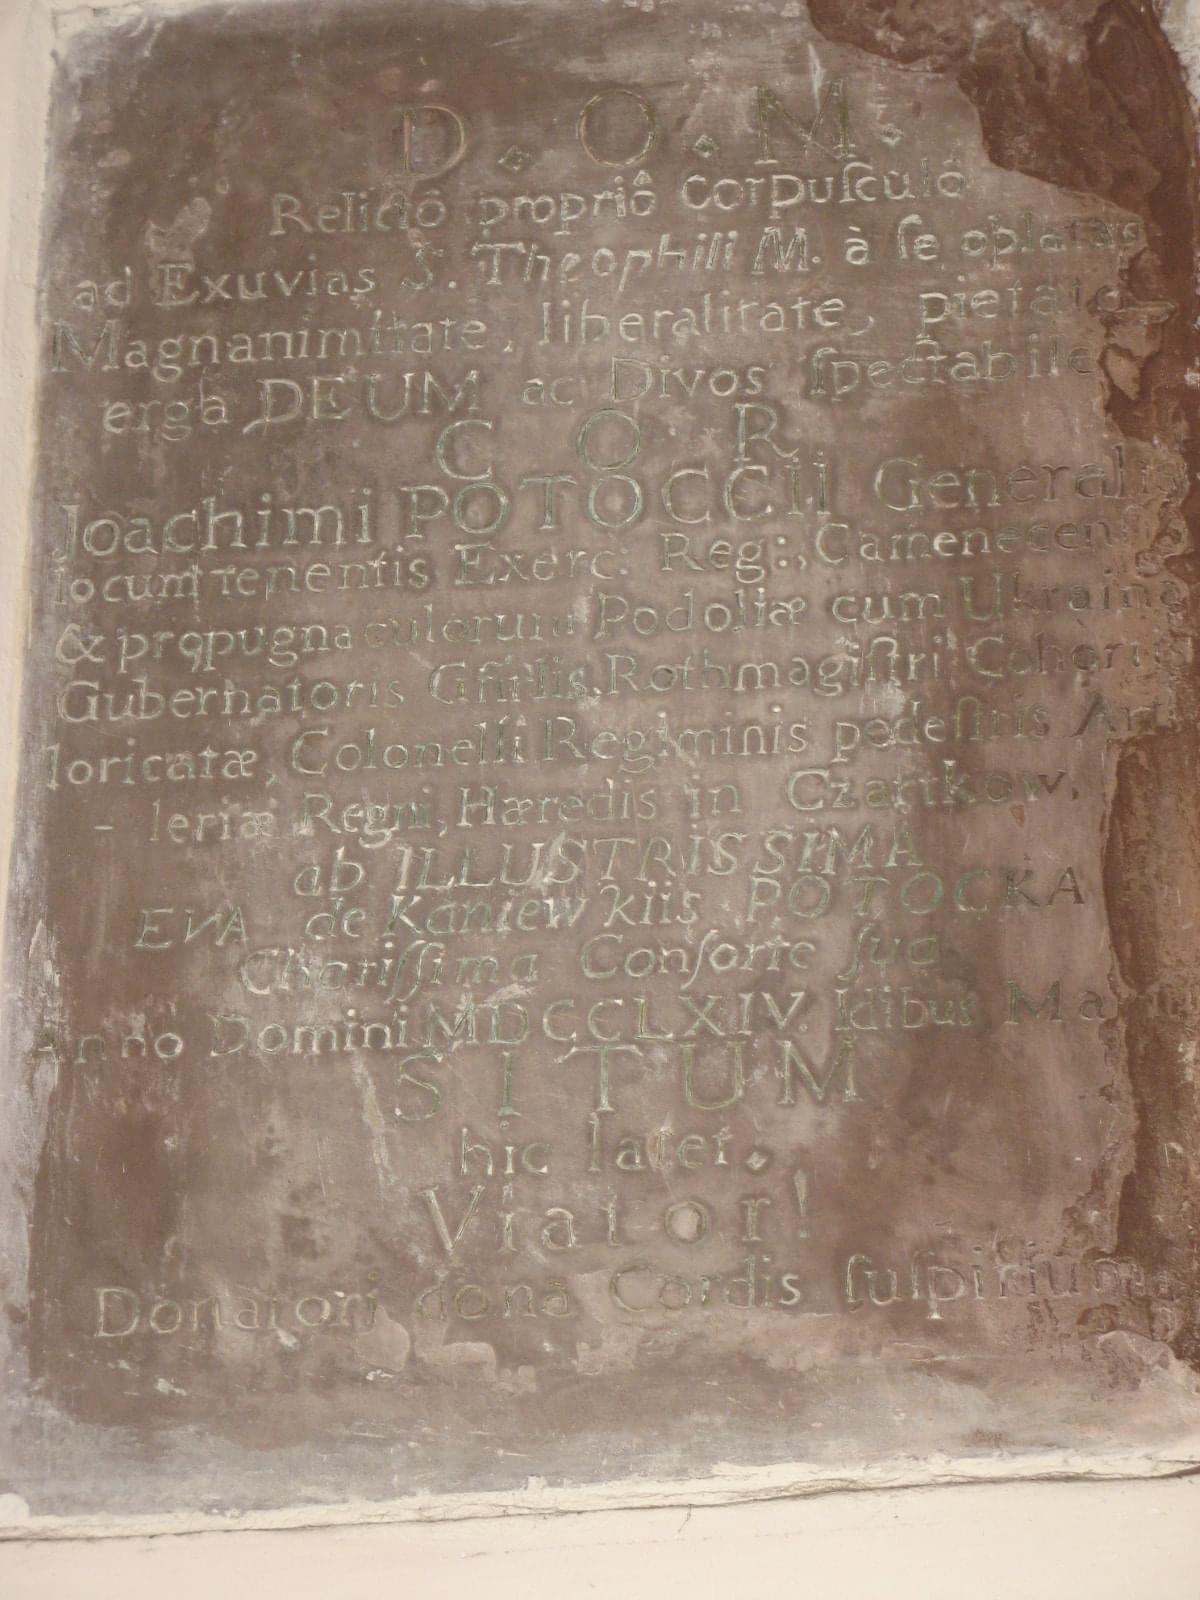 D. O. M.
Relictô propriô corpuſculô
ad Exuvias S. Theophili M. à ſe oplatas
Magnanimitate, liberalitate, pietate
erga DEUM ac Divos ſpectabile
COR
Joachimi POTOCCII Generalis
locum tenentis Exerc: Reg:, Camenecensis
& propugnaculorum Podoliæ cum Ukraina
Gubernatoris Gnrlis, Rothmagiſtri Cohortis
loricatæ, Colonelli Regiminis pedeſtris Art
- leriæ Regni, Hæredis in Czartkow,
ab ILLUSTRISSIMA
EVA de Kaniewſkiis POTOCKA
Chariſſima Conſorte ſua
Anno Domini MDCCLXIV. Idibus
SITUM
hic latet.
Viator!
Donatori dona Cordis ſuſpirium